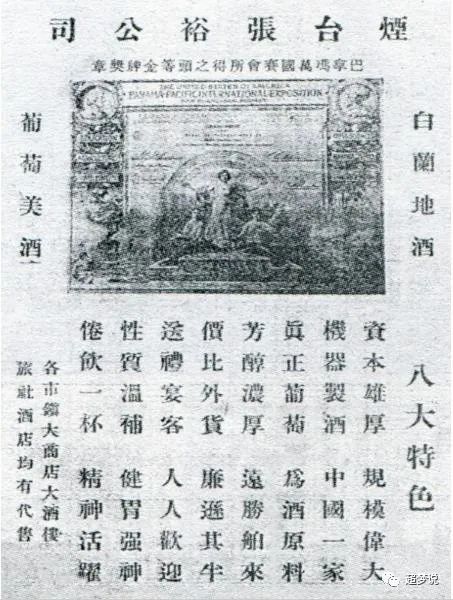 煙台張裕公司
巴拏馬萬國賽會所得之頭等金牌獎章
THE UNITED STATES OF AMERICA
PANAMA-PACIFIC INTERNATIONAL EXPOSITION
白蘭地酒
葡萄美酒
八大特色
資本雄厚 規模偉大
機器製酒 中國一家
眞正葡萄 爲酒原料
芳醇濃厚 遠勝舶來
價比外貨 廉遜其半
送禮宴客 人人歡迎
性質溫補 健胃强神
倦飲一杯 精神活躍
各市鎮大商店大酒樓
旅社酒店均有代售
超梦说